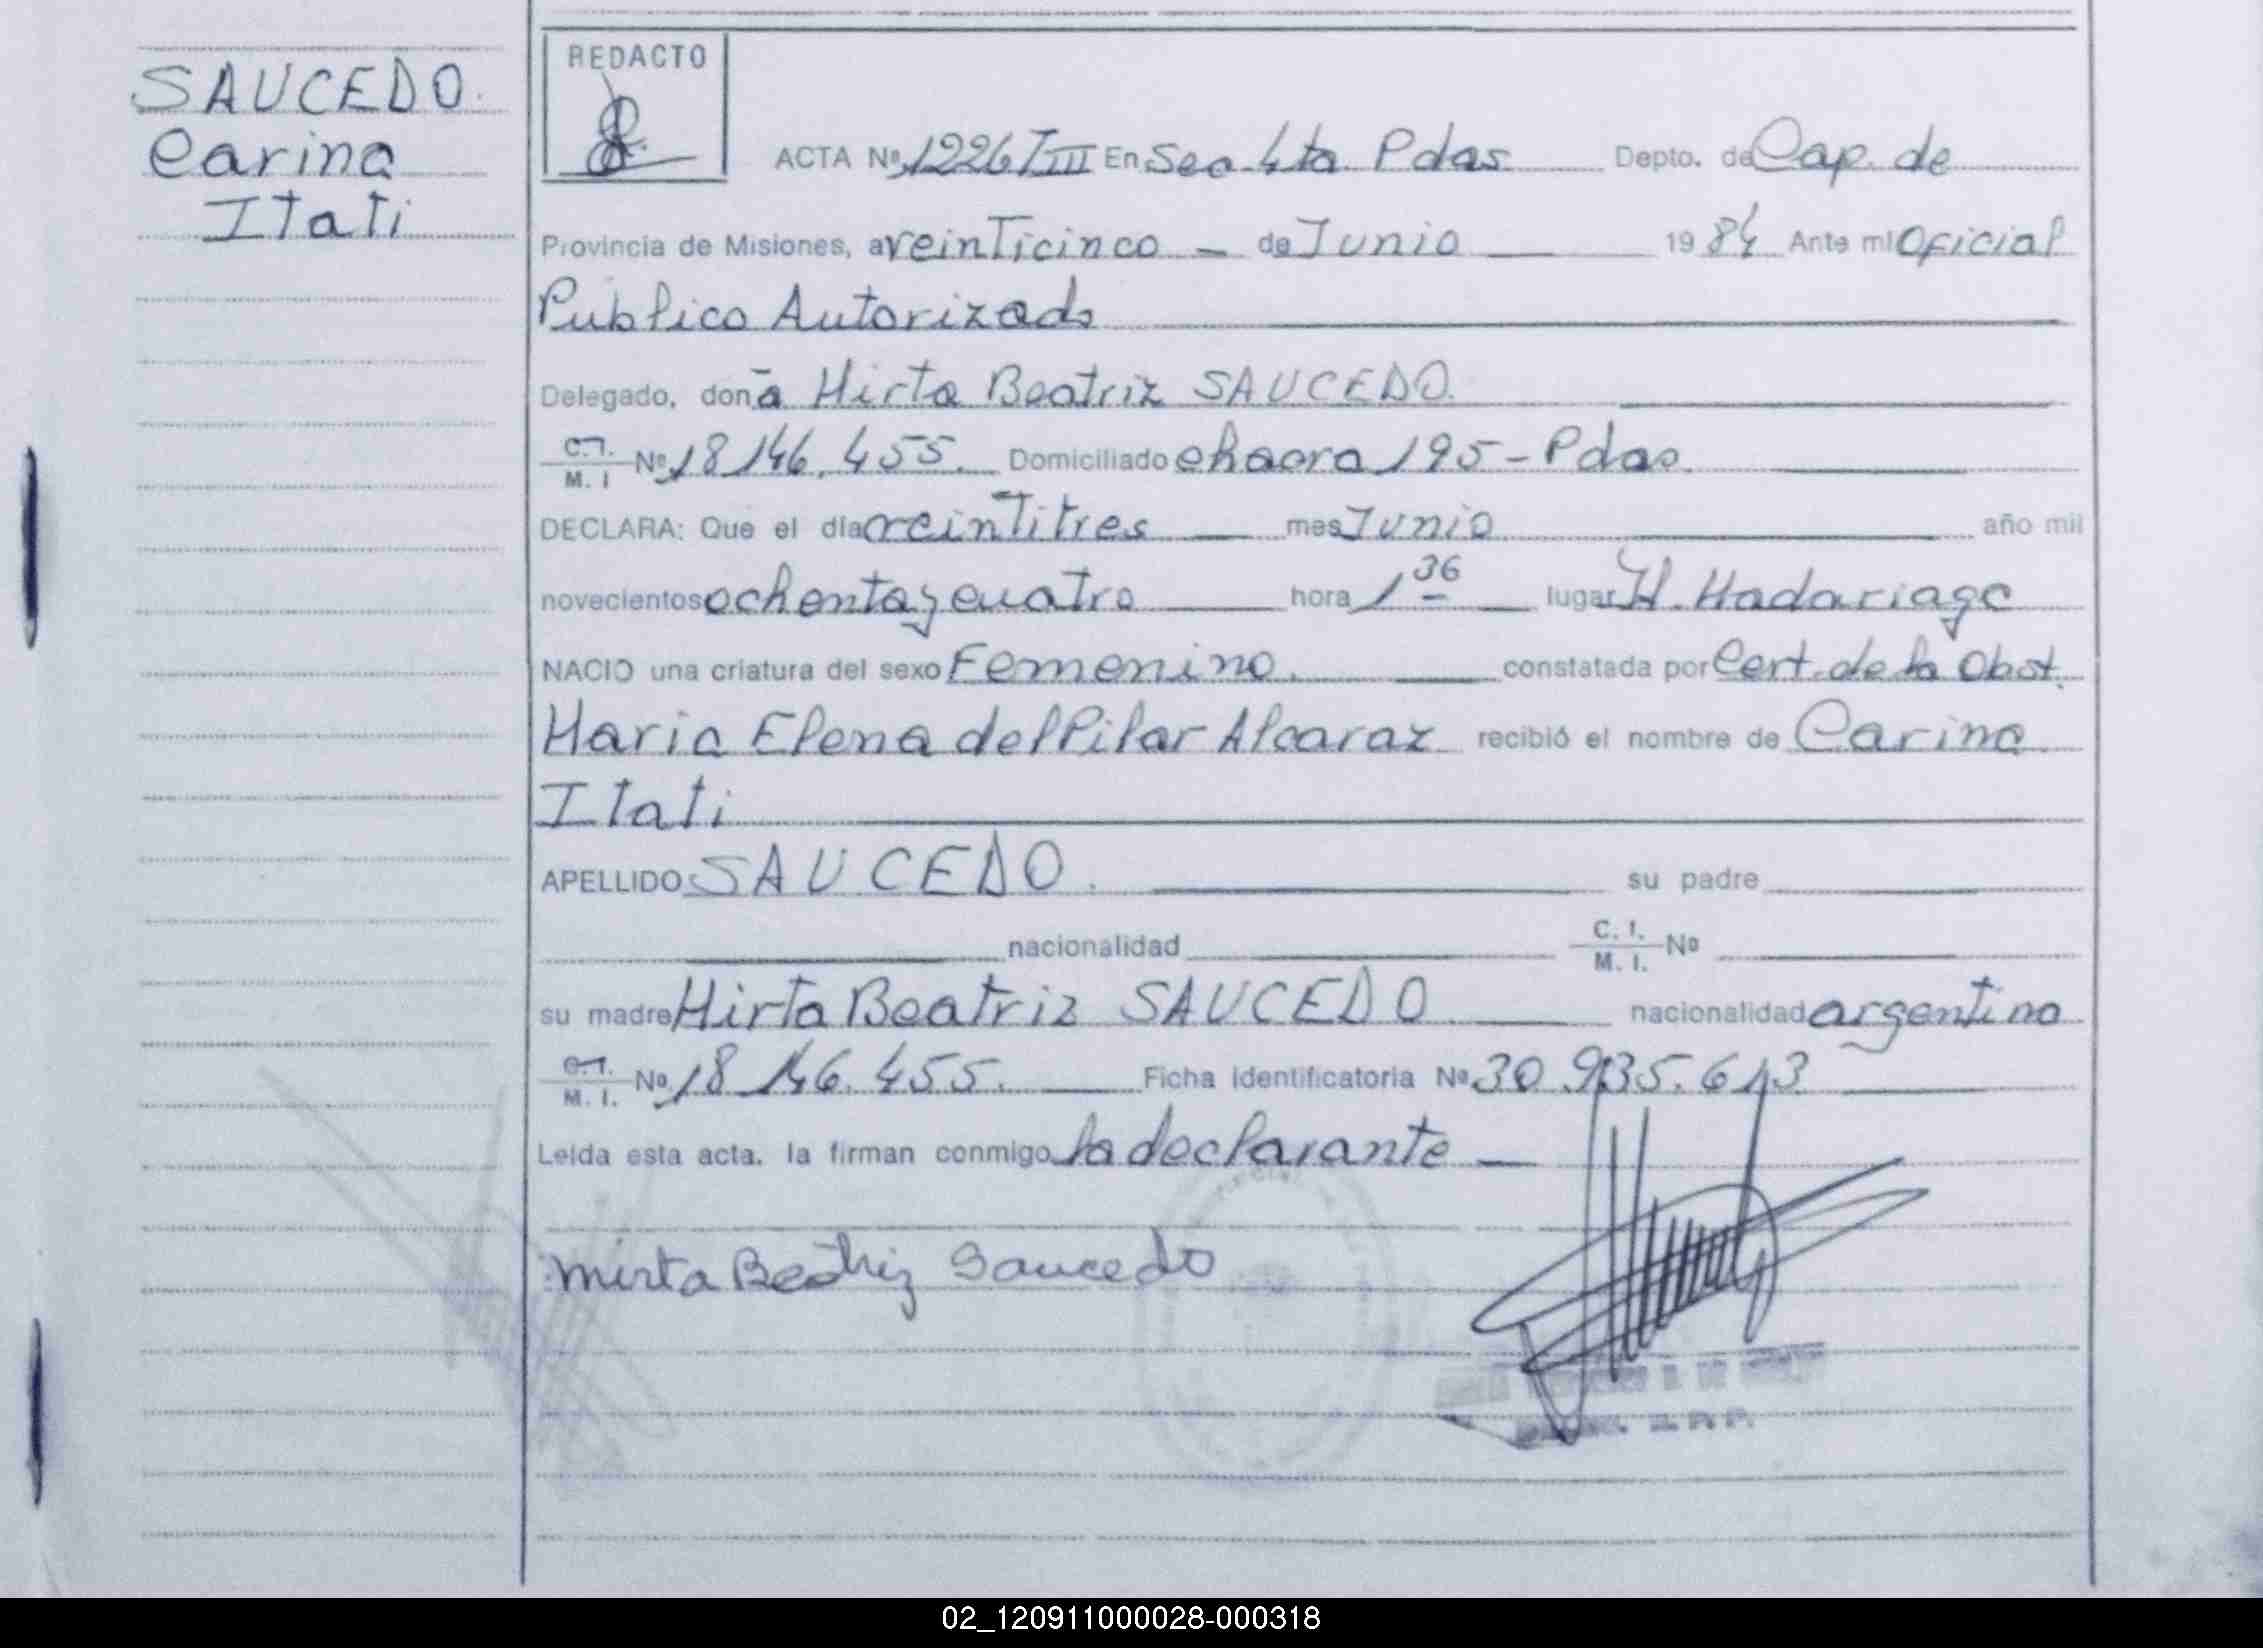 SAUCEDO.
Carina
Itati
REDACTO
ACTA Nº 1226 T III En Sec 4ta Pdas Depto. de Cap. de
Provincia de Misiones, a veinticinco — de Junio — 1984 Ante mi Oficial
Publico Autorizado
Delegado, doña Mirta Beatriz SAUCEDO.
C.I.
M. I Nº 18 146.455. Domiciliado chacra 195 - Pdas.
DECLARA: Que el día veintitres — mes Junio año mil
novecientos ochenta y cuatro — hora 1 36 — lugar H. Madariaga
NACIO una criatura del sexo Femenino. — constatada por Cert. de la Obst.
Maria Elena del Pilar Alcaraz recibió el nombre de Carina
Itati
APELLIDO SAUCEDO. su padre
nacionalidad C. I.
M. I. Nº
su madre Mirta Beatriz SAUCEDO. nacionalidad argentina
C.I.
M. I. Nº 18 146.455. — Ficha Identificatoria Nº 30.935.613
Leída esta acta. la firman conmigo la declarante —
Mirta Beatriz Saucedo
02_120911000028-000318